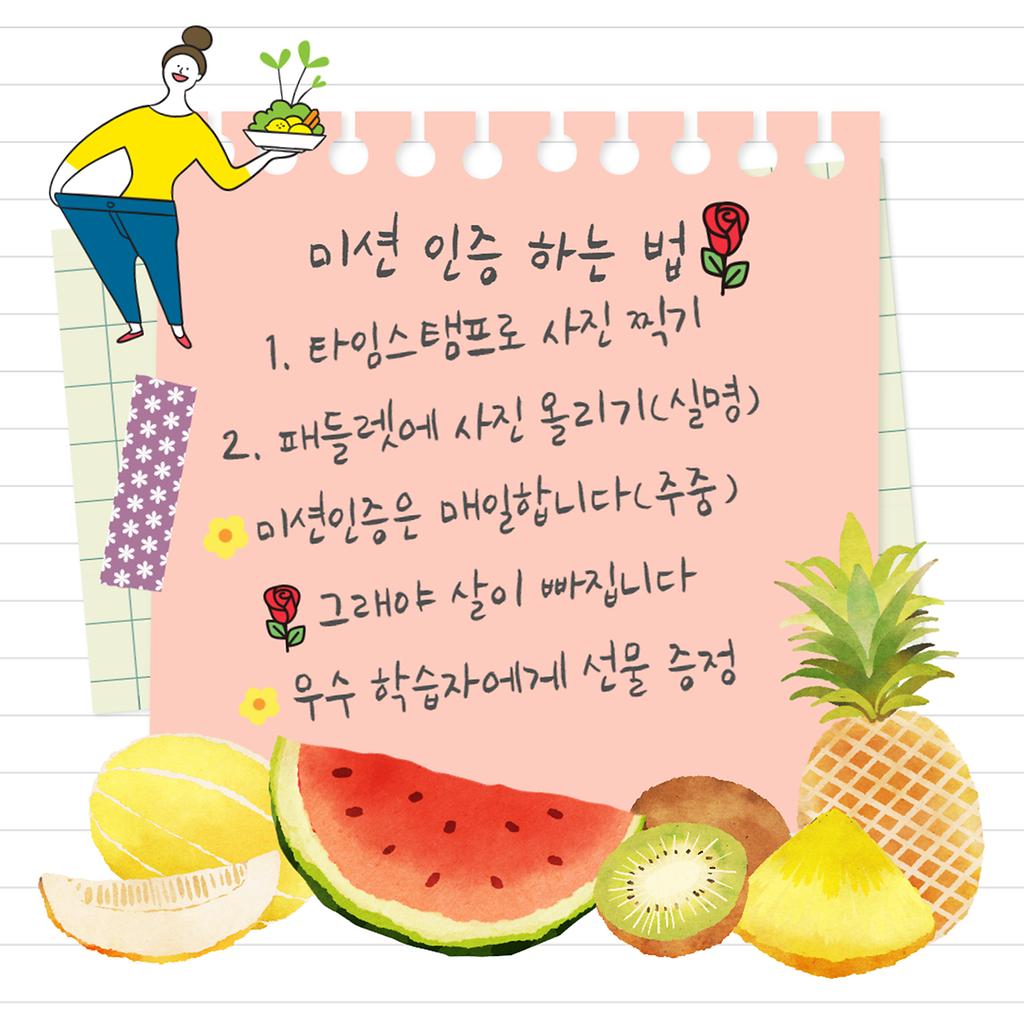 미션 인증 하는 법
1. 타임스탬프로 사진 찍기
2. 패들렛에 사진 올리기(실명)
미션인증은 매일합니다(주중)
그래야 살이 빠집니다
우수 학습자에게 선물 증정